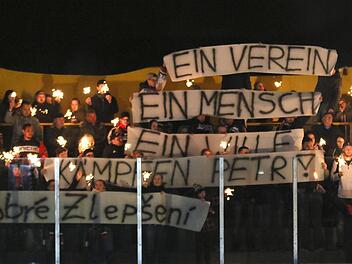 EIN VEREIN
EIN MENSCH
EIN WILLE
KÄMPFEN PETR!
Dobré Zlepšení